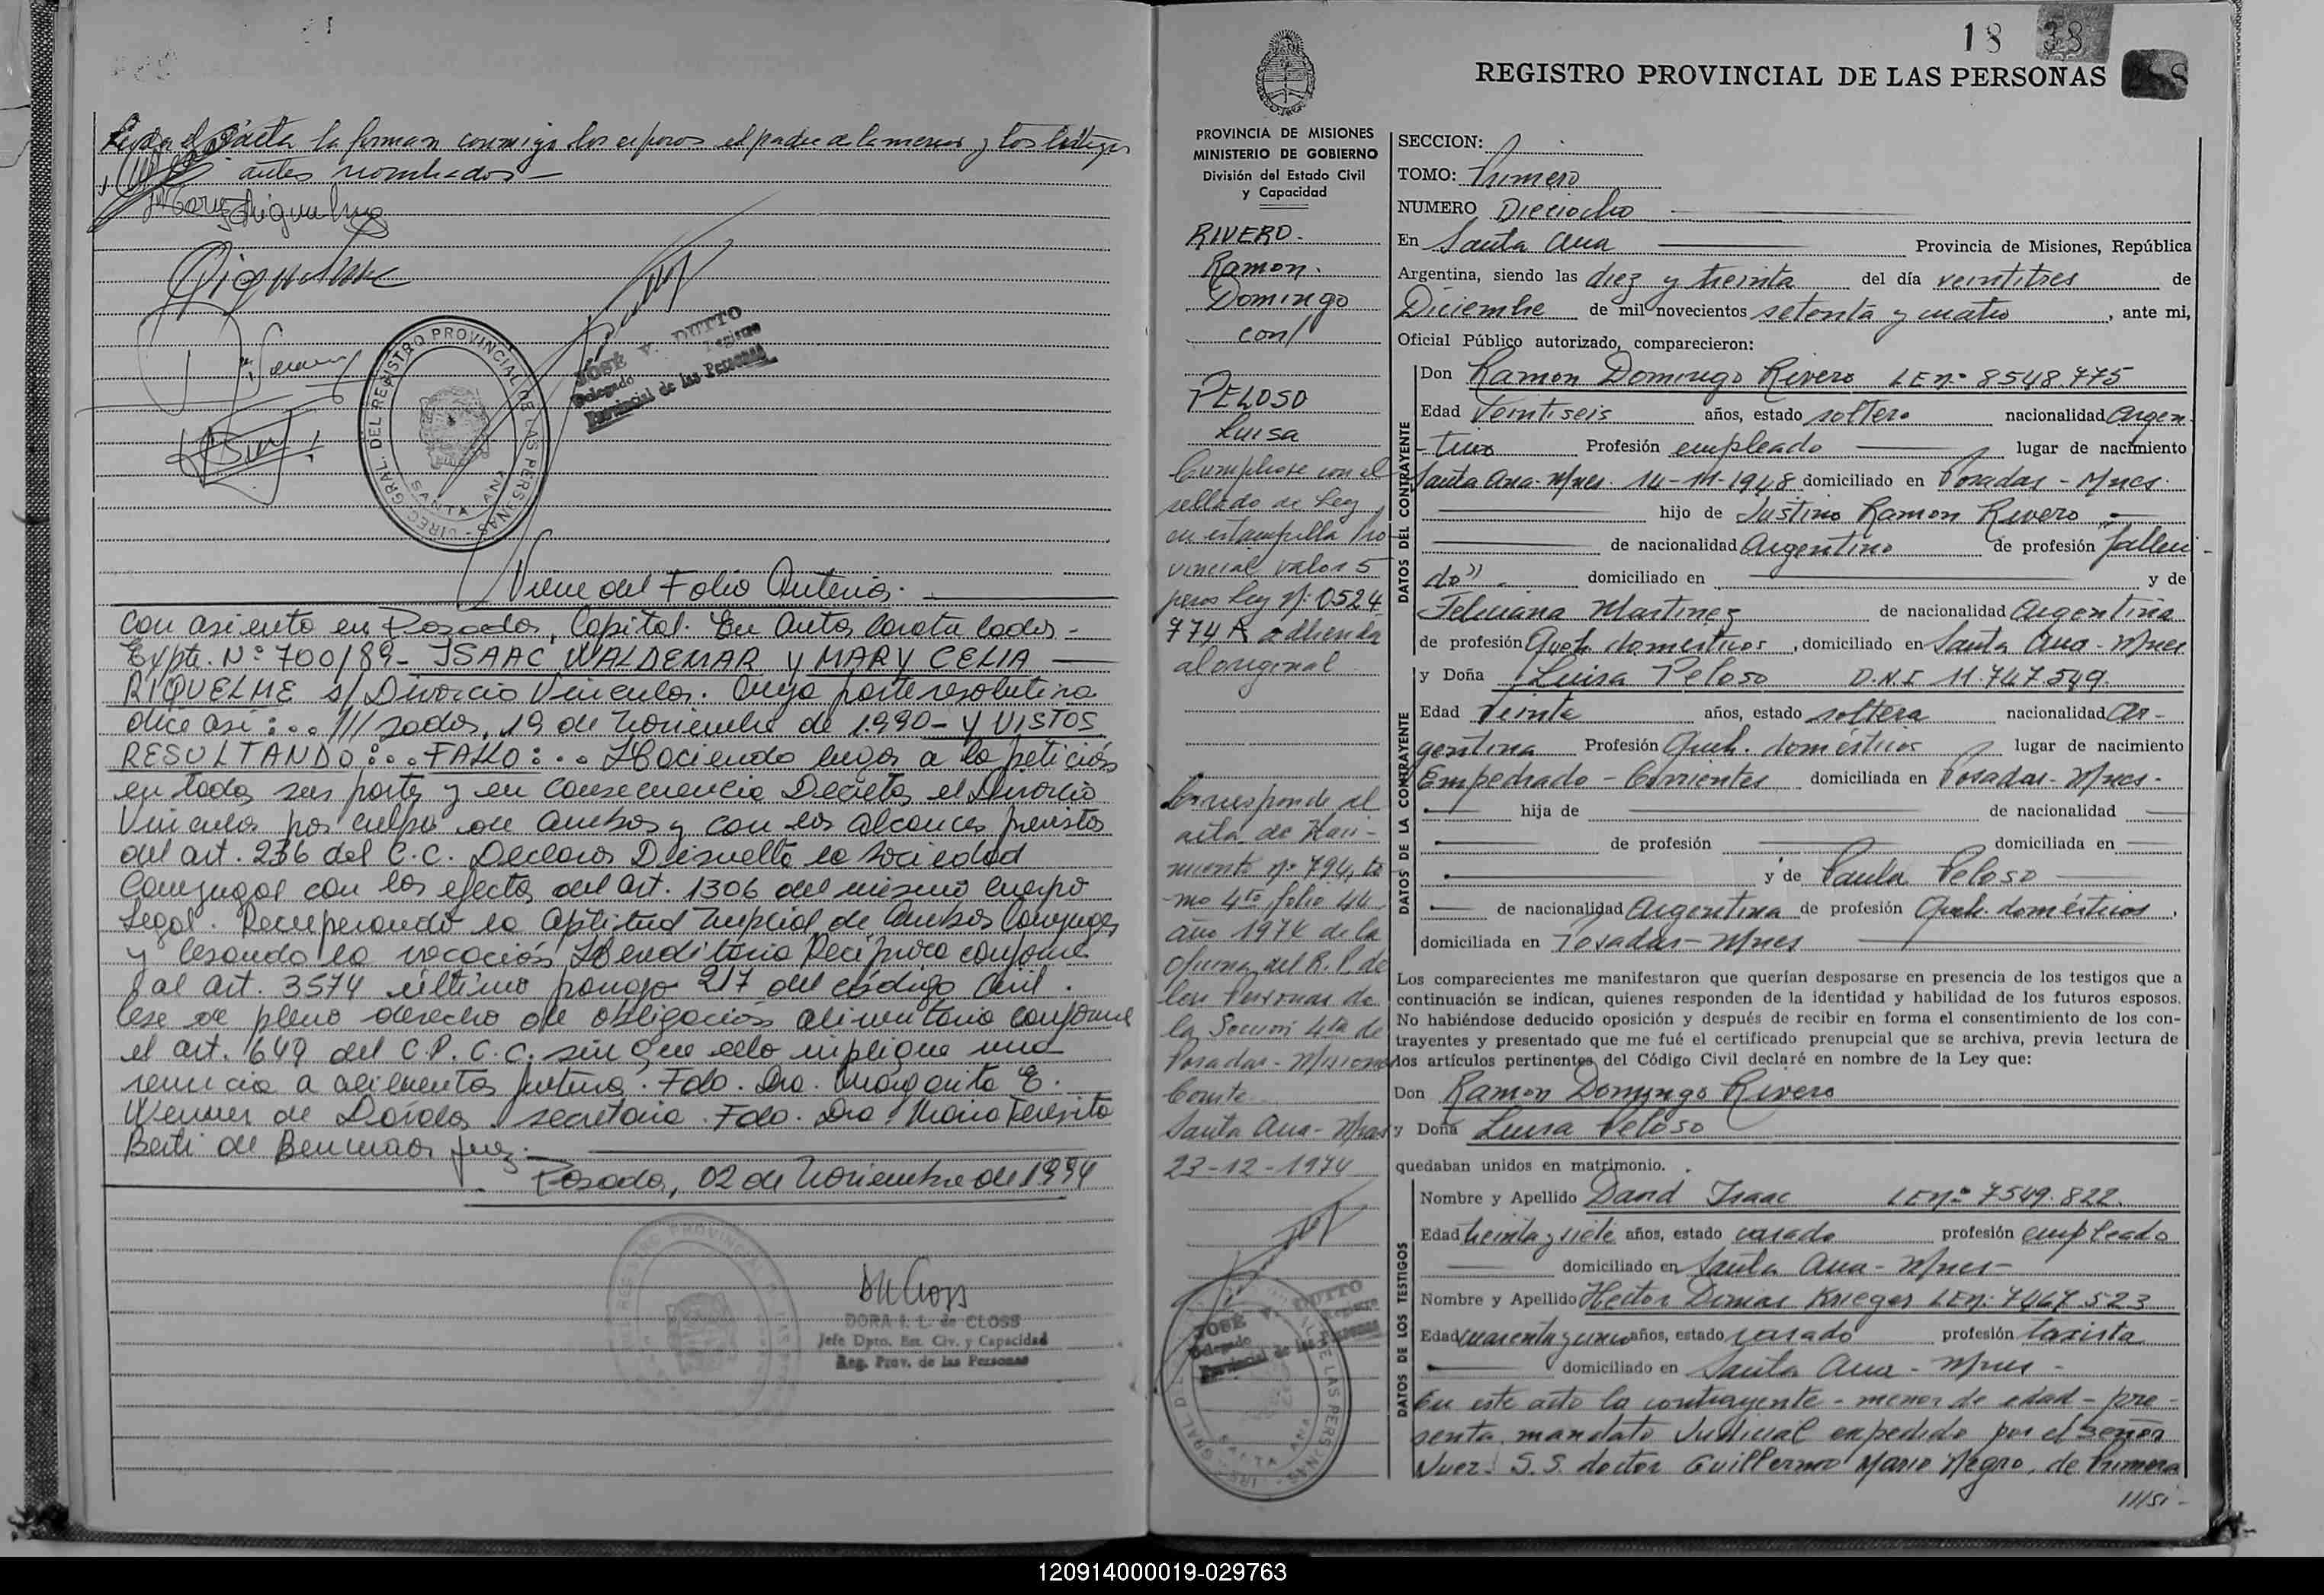 Leida el acta la forman conmigo los esposos el padre de la menor y los testigos
antes nombrados —
DIREC. GRAL. DEL REGISTRO PROVINCIAL DE LAS PERSONAS
SANTA ANA
JOSÉ V. DUTTO
Delegado Registro
Provincial de las Personas
Viene del Folio Anterior.
Con asiento en Posadas, Capital. En Autos Caratulados -
Expte. Nº 700/89 - ISAAC WALDEMAR y MARY CELIA
RIQUELME s/ Divorcio Vincular. Cuya parte resolutiva
dice así: .. ///sadas, 19 de Noviembre de 1.990 - Y VISTOS
RESULTANDO: .. FALLO: .. Haciendo lugar a la petición
en todas sus partes y en consecuencia Decretar el Divorcio
Vincular por culpa de ambos y con los alcances previstos
del art. 236 del C.C. Declarar Disuelta la Sociedad
Conyugal con los efectos del art. 1306 del mismo cuerpo
Legal. Recuperando la Aptitud Nupcial de Ambos Conyuges
y Cesando la vocación Hereditaria Recíproca conforme
al art. 3574 último parrafo 217 del código Civil.
Cese de pleno derecho de obligación alimentaria conforme
el art. 649 del C.P.C.C. sin que ello implique una
renuncia a alimentos futuros. Fdo. Dra. Margarita E.
de Secretaria. Fdo. Dra. Maria Teresita
Berti de juez.
Posadas, 02 de Noviembre de 1994
DORA I. L. de CLOSS
Jefe Dpto. Est. Civ. y Capacidad
Reg. Prov. de las Personas
18 38
REGISTRO PROVINCIAL DE LAS PERSONAS
PROVINCIA DE MISIONES
MINISTERIO DE GOBIERNO
División del Estado Civil
y Capacidad
RIVERO.
Ramon.
Domingo
con/
PELOSO
Luisa
Cumplase con el
sellado de Ley
en estampilla Pro
vincial valor 5
pesos Ley Nº 0524
774 A adherida
al original
Corresponde al
acta de Naci-
miento nº 794, to
mo 4to folio 44
año 1974 de la
Oficina del R. P. de
las Personas de
la Sección 4ta de
Posadas - Misiones
Conste
Santa Ana - Mnes
23-12-1974
JOSE V. DUTTO
Delegado Registro
Provincial de las Personas
SANTA ANA
SECCION:
TOMO: Primero
NUMERO Dieciocho
En Santa Ana Provincia de Misiones, República
Argentina, siendo las diez y treinta del día veintitres de
Diciembre de mil novecientos setenta y cuatro, ante mi,
Oficial Público autorizado, comparecieron:
DATOS DEL CONTRAYENTE
Don Ramon Domingo Rivero LE nº 8548.775
Edad Veintiseis años, estado soltero nacionalidad Argen
-tino Profesión empleado lugar de nacimiento
Santa Ana - Mnes. 14-11-1948 domiciliado en Posadas - Mnes.
hijo de Justino Ramon Rivero
de nacionalidad Argentino de profesión "falleci-
do" - domiciliado en y de
Feliciana Martinez de nacionalidad Argentina
de profesión Queh. domésticos, domiciliado en Santa Ana - Mnes
DATOS DE LA CONTRAYENTE
y Doña Luisa Peloso D.N.I 11.747.549.
Edad Veinte años, estado soltera nacionalidad Ar-
gentina Profesión Queh. domésticos lugar de nacimiento
Empedrado - Corrientes domiciliada en Posadas - Mnes -
hija de de nacionalidad
de profesión domiciliada en
y de Paula Peloso
de nacionalidad Argentina de profesión Queh. domésticos,
domiciliada en Posadas - Mnes
Los comparecientes me manifestaron que querían desposarse en presencia de los testigos que a
continuación se indican, quienes responden de la identidad y habilidad de los futuros esposos.
No habiéndose deducido oposición y después de recibir en forma el consentimiento de los con-
trayentes y presentado que me fué el certificado prenupcial que se archiva, previa lectura de
los artículos pertinentes del Código Civil declaré en nombre de la Ley que:
Don Ramon Domingo Rivero
y Doña Luisa Peloso
quedaban unidos en matrimonio.
DATOS DE LOS TESTIGOS
Nombre y Apellido David Isaac LE nº 7549.822.
Edad treinta y siete años, estado casado profesión empleado
domiciliado en Santa Ana - Mnes -
Nombre y Apellido Hector Dimas Krieger LE nº 7467.523
Edad cuarenta y cinco años, estado casado profesión taxista
domiciliado en Santa Ana - Mnes -
En este acto la contrayente - menor de edad - pre-
senta mandato Judicial expedido por el Señor
Juez S.S. doctor Guillermo Mario Negro, de Primera
///si-
120914000019-029763